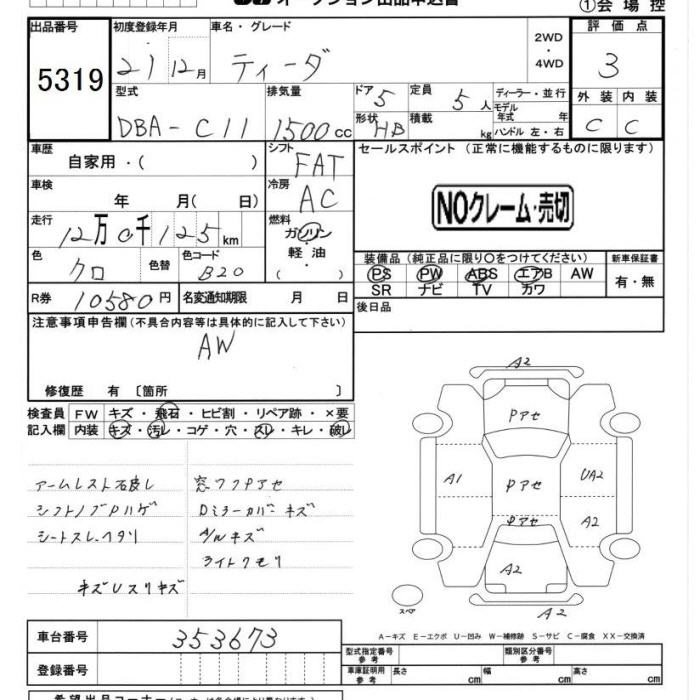 オークション出品申込書
①会場控
出品番号 初度登録年月 車名・グレード 2WD・4WD 評価点
5319 21 12月 ティーダ 3
型式 排気量 ドア 5 定員 5人 ディーラー・並行 外装 内装
DBA-C11 1500cc 形状 HB 積載 kg モデル年式 年 ハンドル 左・右 C C
車歴 自家用・( ) シフト FAT セールスポイント (正常に機能するものに限ります)
車検 年 月( 日) 冷房 AC NOクレーム・売切
走行 12万0千125km 燃料 ガソリン・軽油・
色 クロ 色替 色コード B20 装備品 (純正品に限り〇をつけてください) 新車保証書
PS PW ABS エアB AW 有・無
SR ナビ TV カワ
R券 10580円 名変通知期限 月 日 後日品
注意事項申告欄 (不具合内容等は具体的に記入して下さい)
AW
修復歴 有 〔箇所 〕
検査員 FW キズ・飛石・ヒビ割・リペア跡・×要
記入欄 内装 キズ・汚レ・コゲ・穴・スレ・キレ・破レ
シフトノブPハゲ Dミラーカバーキズ
シートスレ・ヘタリ
ライトクモリ
キズUスリキズ
A2
Pアセ
A1 Pアセ UA2
Pアセ A2
A2
スペア
A2
A-キズ E-エクボ U-凹み W-補修跡 S-サビ C-腐食 XX-交換済
車台番号 353673
型式指定番号 参考 類別区分番号 参考
登録番号 車庫証明用 参考 長さ cm 幅 cm 高さ cm